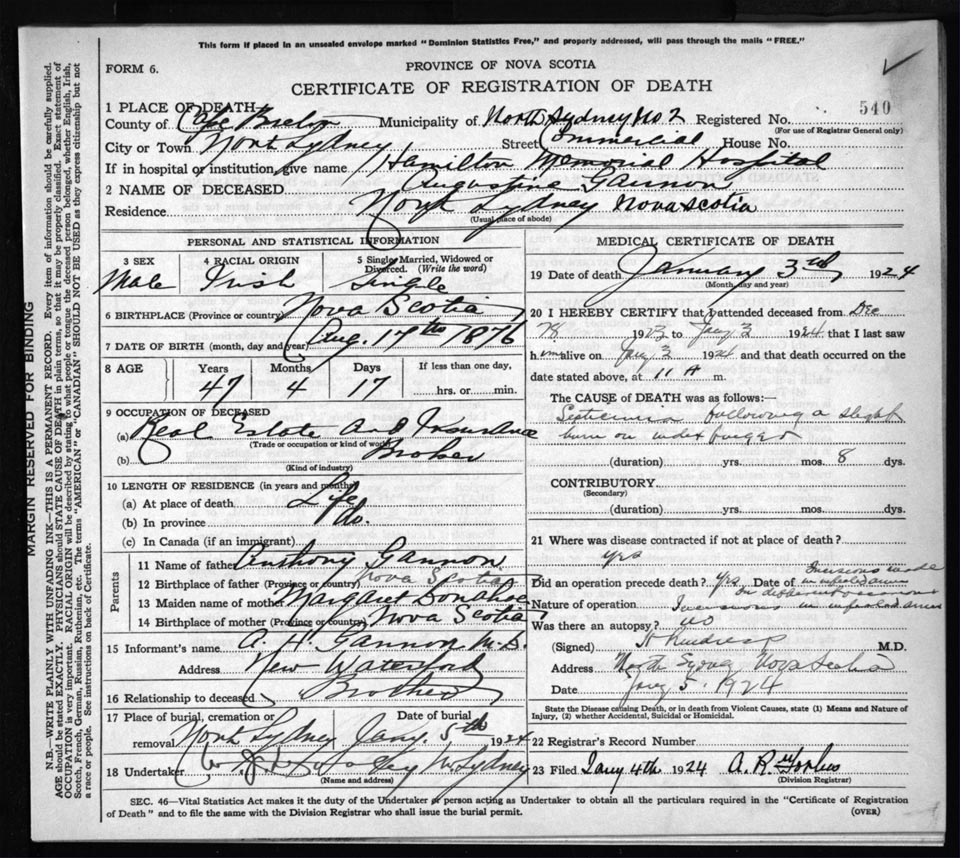 This form if placed in an unsealed envelope marked "Dominion Statistics Free," and properly addressed, will pass through the mails "FREE."
FORM 6. PROVINCE OF NOVA SCOTIA
CERTIFICATE OF REGISTRATION OF DEATH
540
1 PLACE OF DEATH
County of Cape Breton Municipality of North Sydney No 2 Registered No.
(For use of Registrar General only)
City or Town North Sydney Street Commercial House No.
If in hospital or institution, give name Hamilton Memorial Hospital
2 NAME OF DECEASED Augustine Gannon
Residence North Sydney Nova Scotia
(Usual place of abode)
PERSONAL AND STATISTICAL INFORMATION
3 SEX 4 RACIAL ORIGIN 5 Single, Married, Widowed or Divorced. (Write the word)
Male Irish Single
6 BIRTHPLACE (Province or country) Nova Scotia
7 DATE OF BIRTH (month, day and year) Aug. 17th 1876
8 AGE Years Months Days If less than one day,
47 4 17 hrs. or min.
9 OCCUPATION OF DECEASED
(a) Real Estate and Insurance
(Trade or occupation or kind of work)
Broker
(b)
(Kind of industry)
10 LENGTH OF RESIDENCE (in years and months)
(a) At place of death Life
(b) In province Do.
(c) In Canada (if an immigrant)
Parents
11 Name of father Anthony Gannon
12 Birthplace of father (Province or country) Nova Scotia
13 Maiden name of mother Margaret Donahoe
14 Birthplace of mother (Province or country) Nova Scotia
15 Informant's name A. H. Gannon M.D.
Address New Waterford
16 Relationship to deceased Brother
17 Place of burial, cremation or removal Date of burial
North Sydney Jany. 5th 1924
18 Undertaker N. Sydney
(Name and address)
MEDICAL CERTIFICATE OF DEATH
19 Date of death January 3rd, 1924
(Month, day and year)
20 I HEREBY CERTIFY that I attended deceased from Dec
28 1923 to Jany 3 1924 that I last saw
him alive on Jany 3 1924 and that death occurred on the
date stated above, at 11 A m.
The CAUSE of DEATH was as follows:—
following a slight
burn on index finger
(duration) yrs. mos. 8 dys.
CONTRIBUTORY
(Secondary)
(duration) yrs. mos. dys.
21 Where was disease contracted if not at place of death?
yes
Did an operation precede death? yes Date of Incisions made
in infected arm
on different occasions
Nature of operation Incisions in infected arm
Was there an autopsy? no
(Signed) M.D.
Address North Sydney Nova Scotia
Date Jany 5. 1924
State the Disease causing Death, or in death from Violent Causes, state (1) Means and Nature of Injury, (2) whether Accidental, Suicidal or Homicidal.
22 Registrar's Record Number
23 Filed Jany 4th 1924 A. R. Forbes
(Division Registrar)
SEC. 46—Vital Statistics Act makes it the duty of the Undertaker or person acting as Undertaker to obtain all the particulars required in the "Certificate of Registration
of Death" and to file the same with the Division Registrar who shall issue the burial permit. (OVER)
MARGIN RESERVED FOR BINDING
N.B.—WRITE PLAINLY WITH UNFADING INK—THIS IS A PERMANENT RECORD. Every item of information should be carefully supplied.
AGE should be stated EXACTLY. PHYSICIANS should STATE CAUSE OF DEATH in plain terms, so that it may be properly classified. Exact statement of
OCCUPATION is very important. RACIAL ORIGIN will be described by stating to what people or tongue the deceased person belonged, whether English, Irish,
Scotch, French, German, Russian, Ruthenian, etc. The terms "AMERICAN" or "CANADIAN" SHOULD NOT BE USED as they express citizenship but not
a race or people. See instructions on back of Certificate.